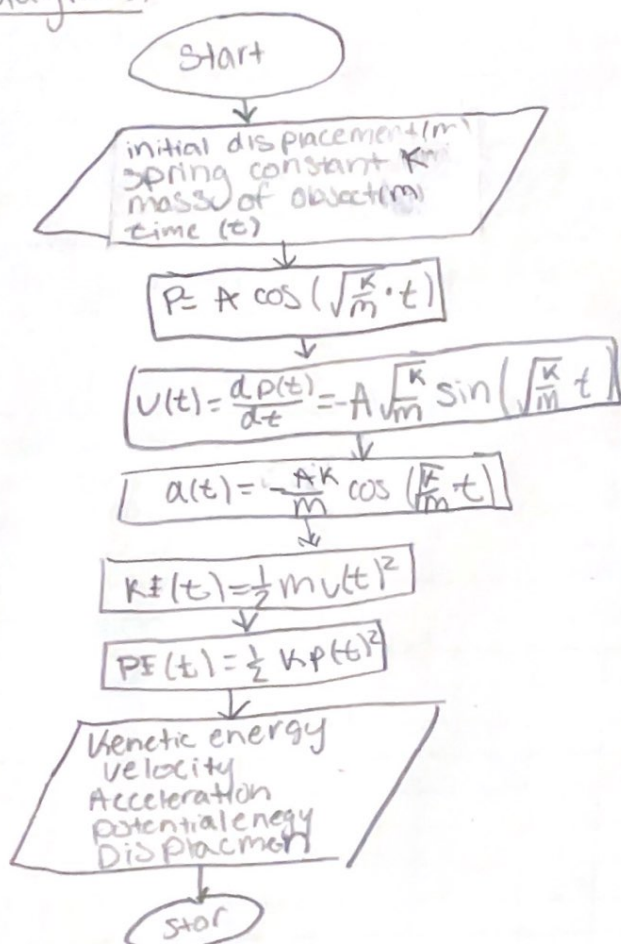 Start
initial displacement(m)
spring constant K
mass of object(m)
time (t)
P= A cos(√K/m · t)
v(t) = dp(t)/dt = -A√K/m sin(√K/m t
a(t) = -AK/m cos(√K/m t)
KE(t) = 1/2 m v(t)²
PE(t) = 1/2 K p(t)²
Kenetic energy
velocity
Acceleration
potential enegy
Displacmen
stop